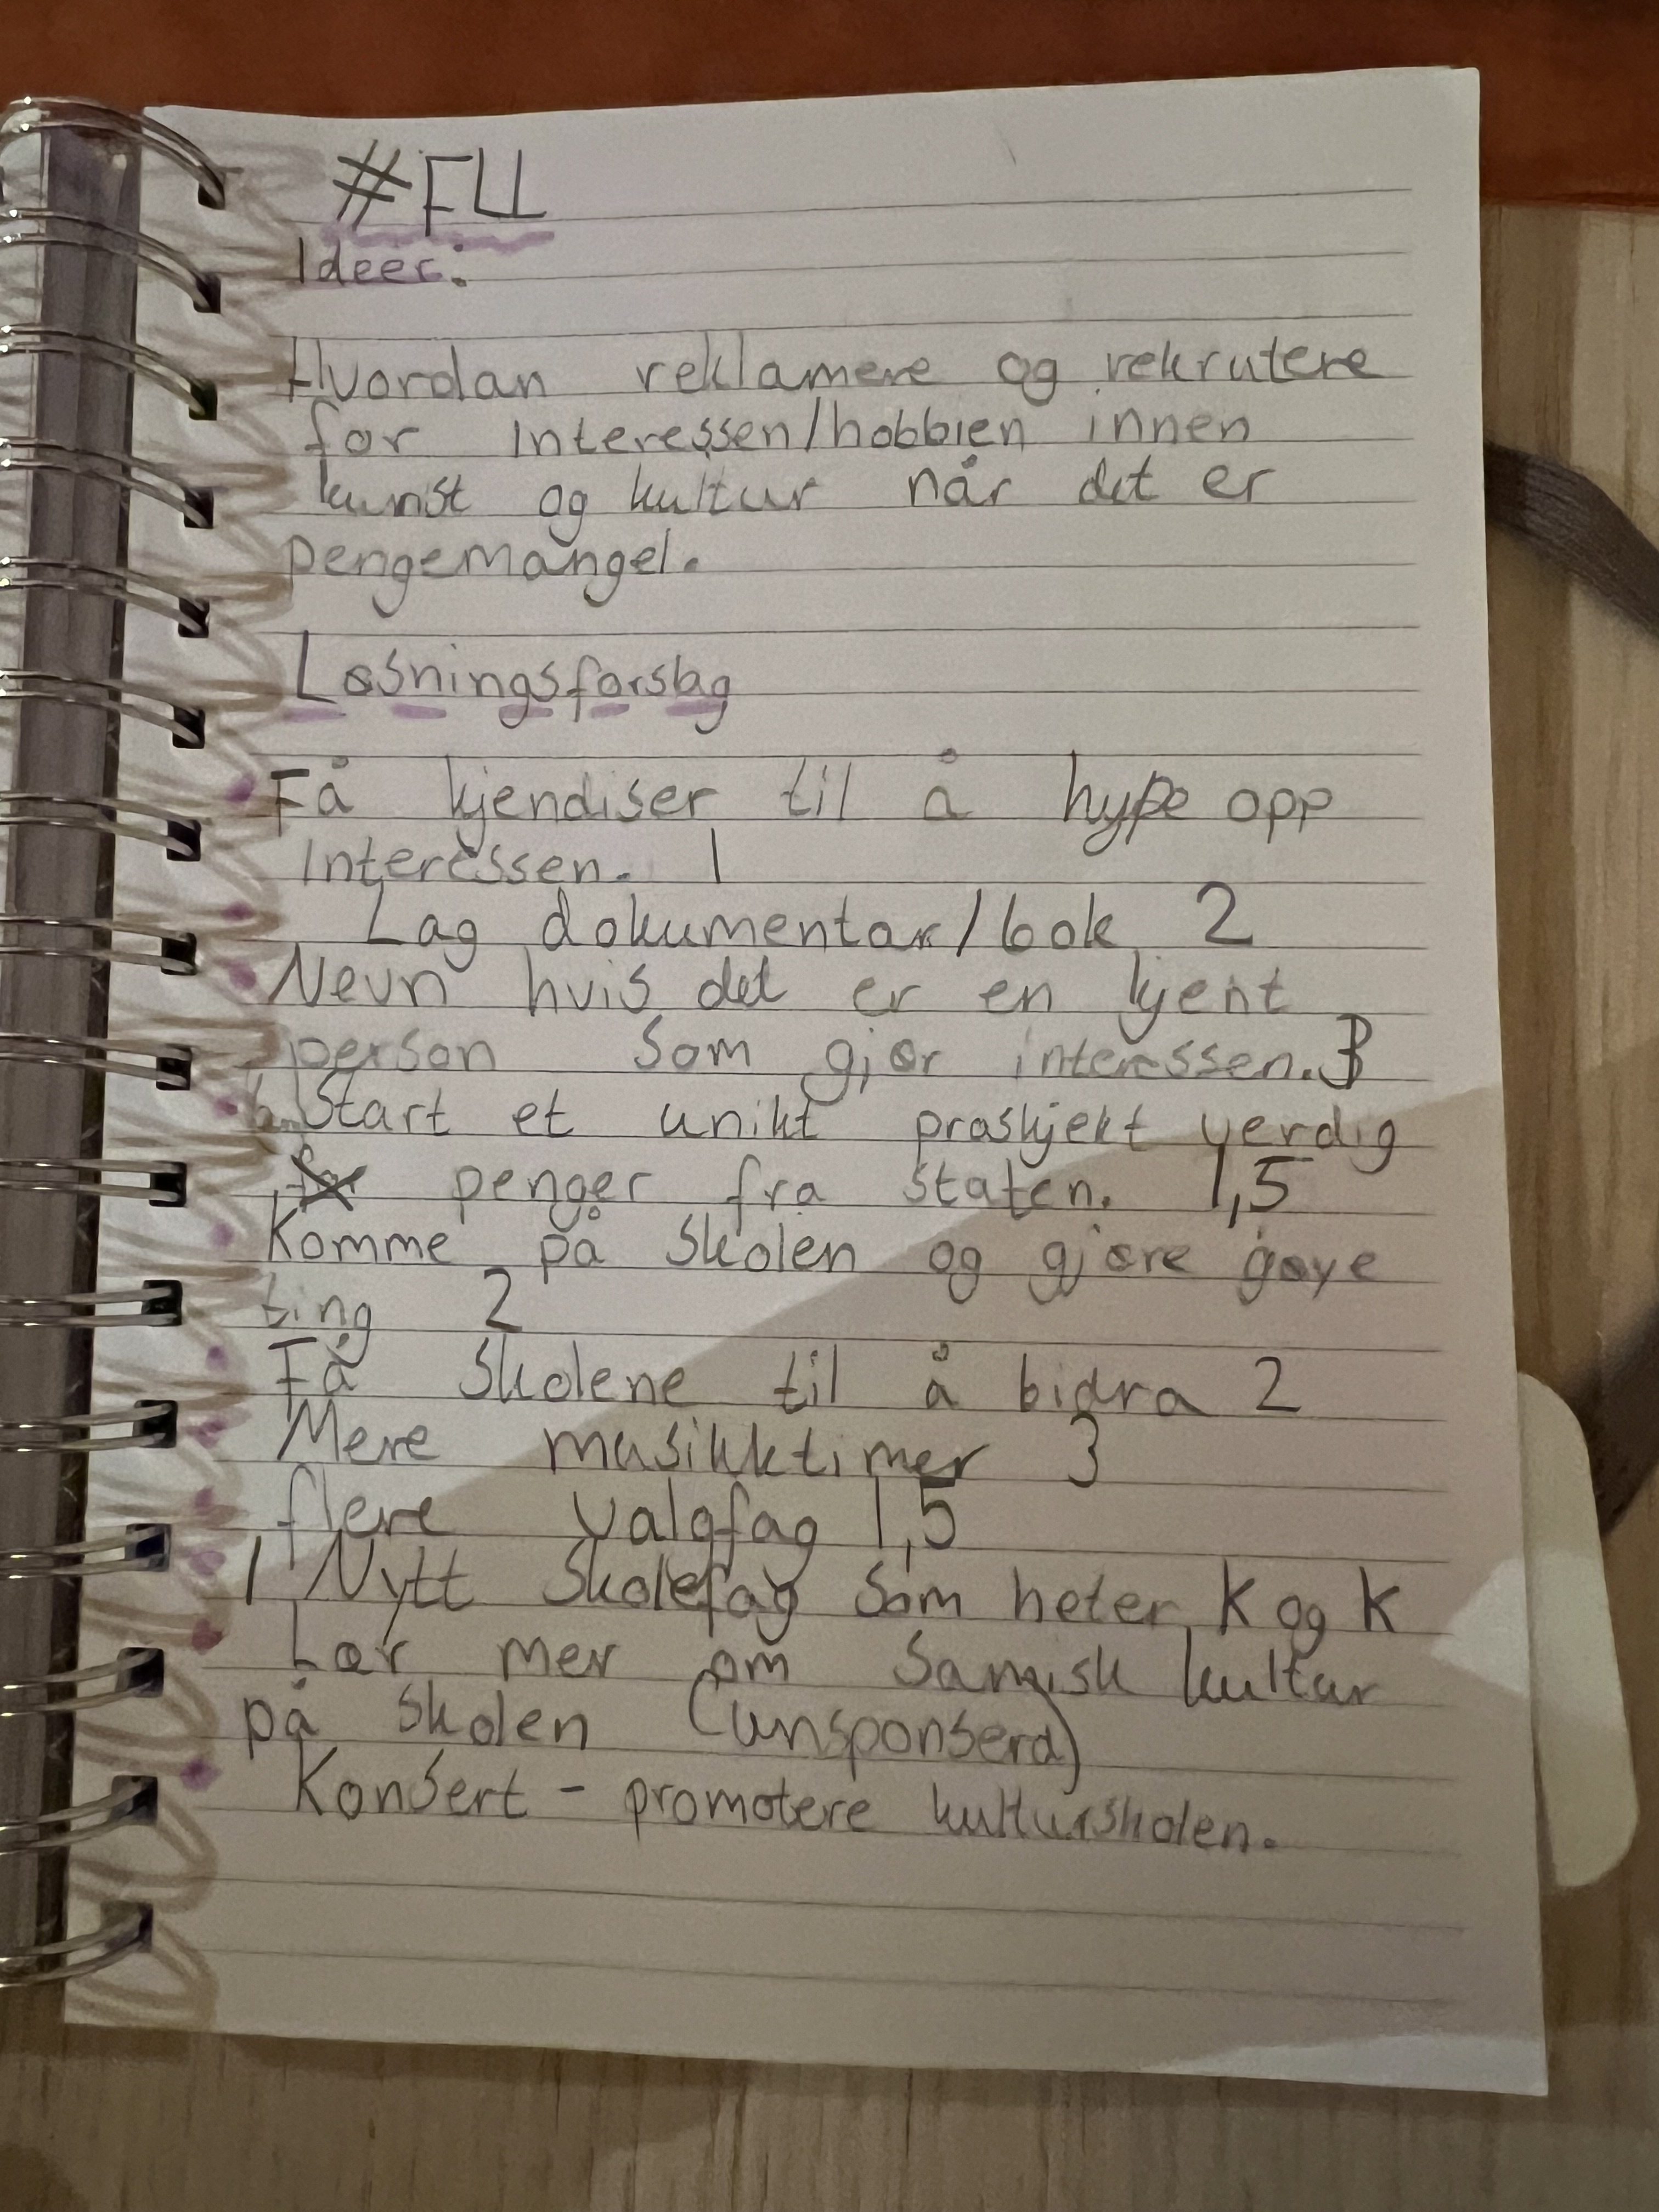 #FLL
Ideer:
Hvordan reklamere og rekrutere
for Interessen/hobbien innen
kunst og kultur når det er
pengemangel.
Løsningsforslag
Få kjendiser til å hype opp
Interessen. 1
Lag dokumentar/bok 2
Nevn hvis det er en kjent
person som gjør interessen. 3
Start et unikt proskjekt verdig
penger fra staten. 1,5
Komme på skolen og gjøre gøye
ting 2
Få skolene til å bidra 2
Mere musikktimer 3
flere valgfag 1,5
1 Nytt skolefag som heter K og K
Lær mer om Samisk kultur
på skolen (unsponserd)
Konsert - promotere kulturskolen.